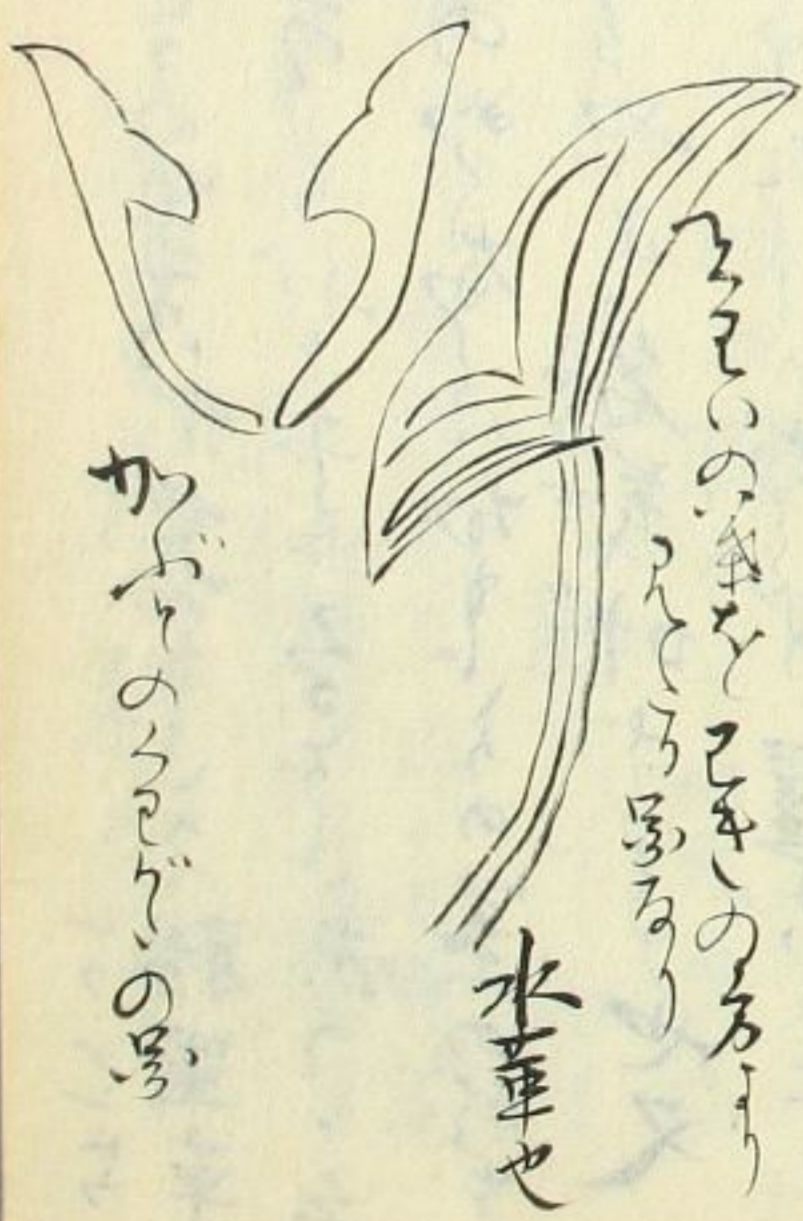 くわいの葉をわきの方より
見たる図なり
水草也
かぶとのくわがたの図